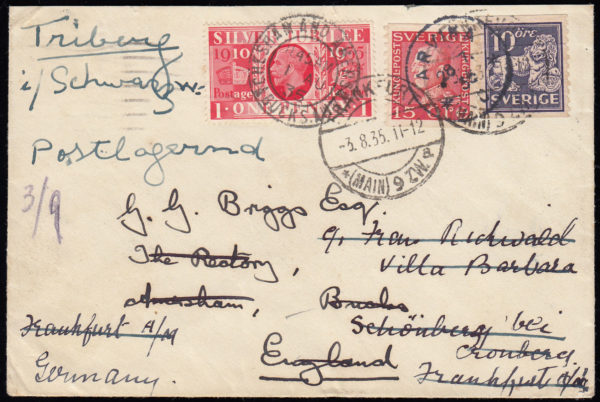 Triberg
i/ Schwarzw.
Postlagernd
3/9
SILVER JUBILEE
1910 1935
Postage
1 · ONE
KUNGL POST
15
SVERIGE
10 ÖRE
SVERIGE
FRANKFU
-3.8.35. 11-12
* (MAIN) 9 ZW. a
(MAIN) 9
G. G. Briggs Esq.
The Rectory,
Amersham,
Bucks
England
c/o Frau Richwald
Villa Barbara
Schönberg bei
Cronberg
Frankfurt a/M
Frankfurt A/M
Germany.